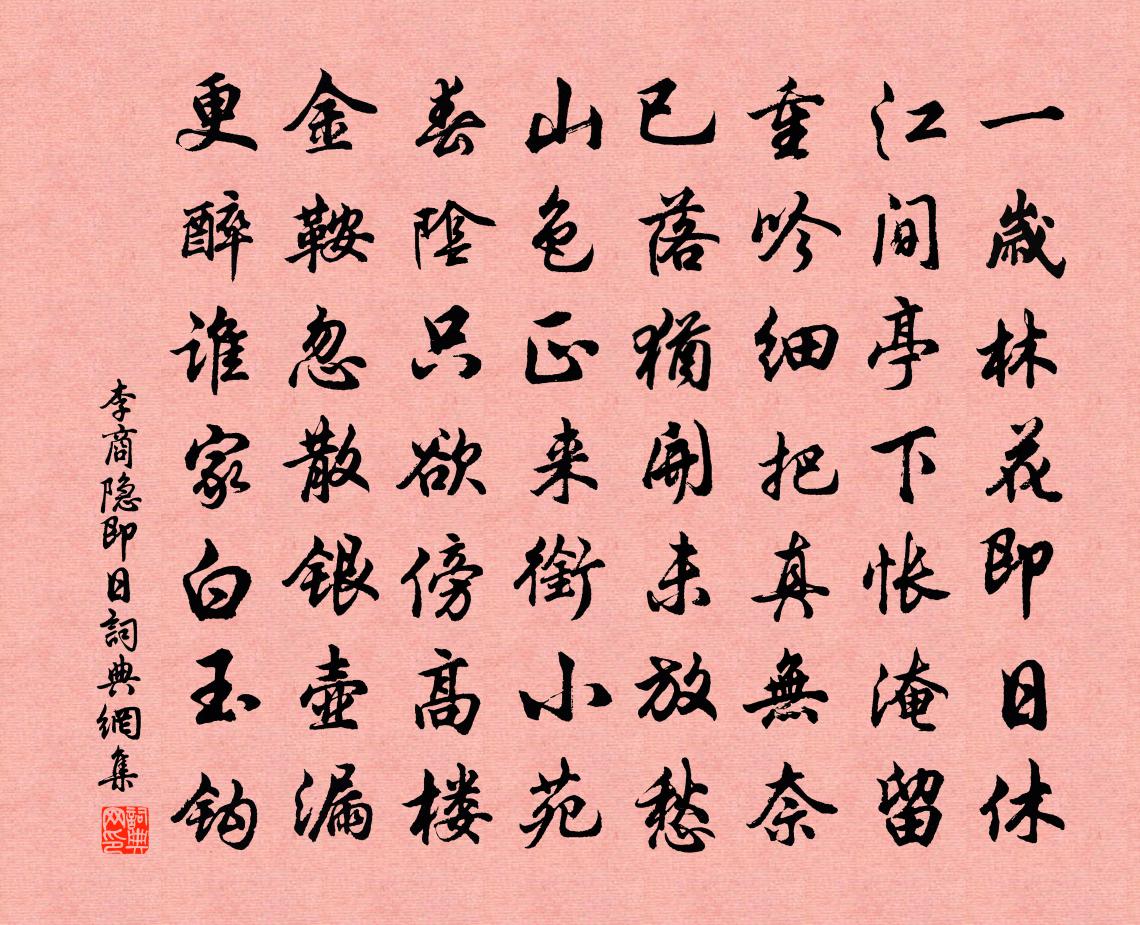 一歲林花即日休
江間亭下悵淹留
重吟細把真無奈
已落猶開未放愁
山色正来銜小苑
春陰只欲傍高楼
金鞍忽散銀壺漏
更醉誰家白玉鈎
李商隐即日詞典網集
詞典网印